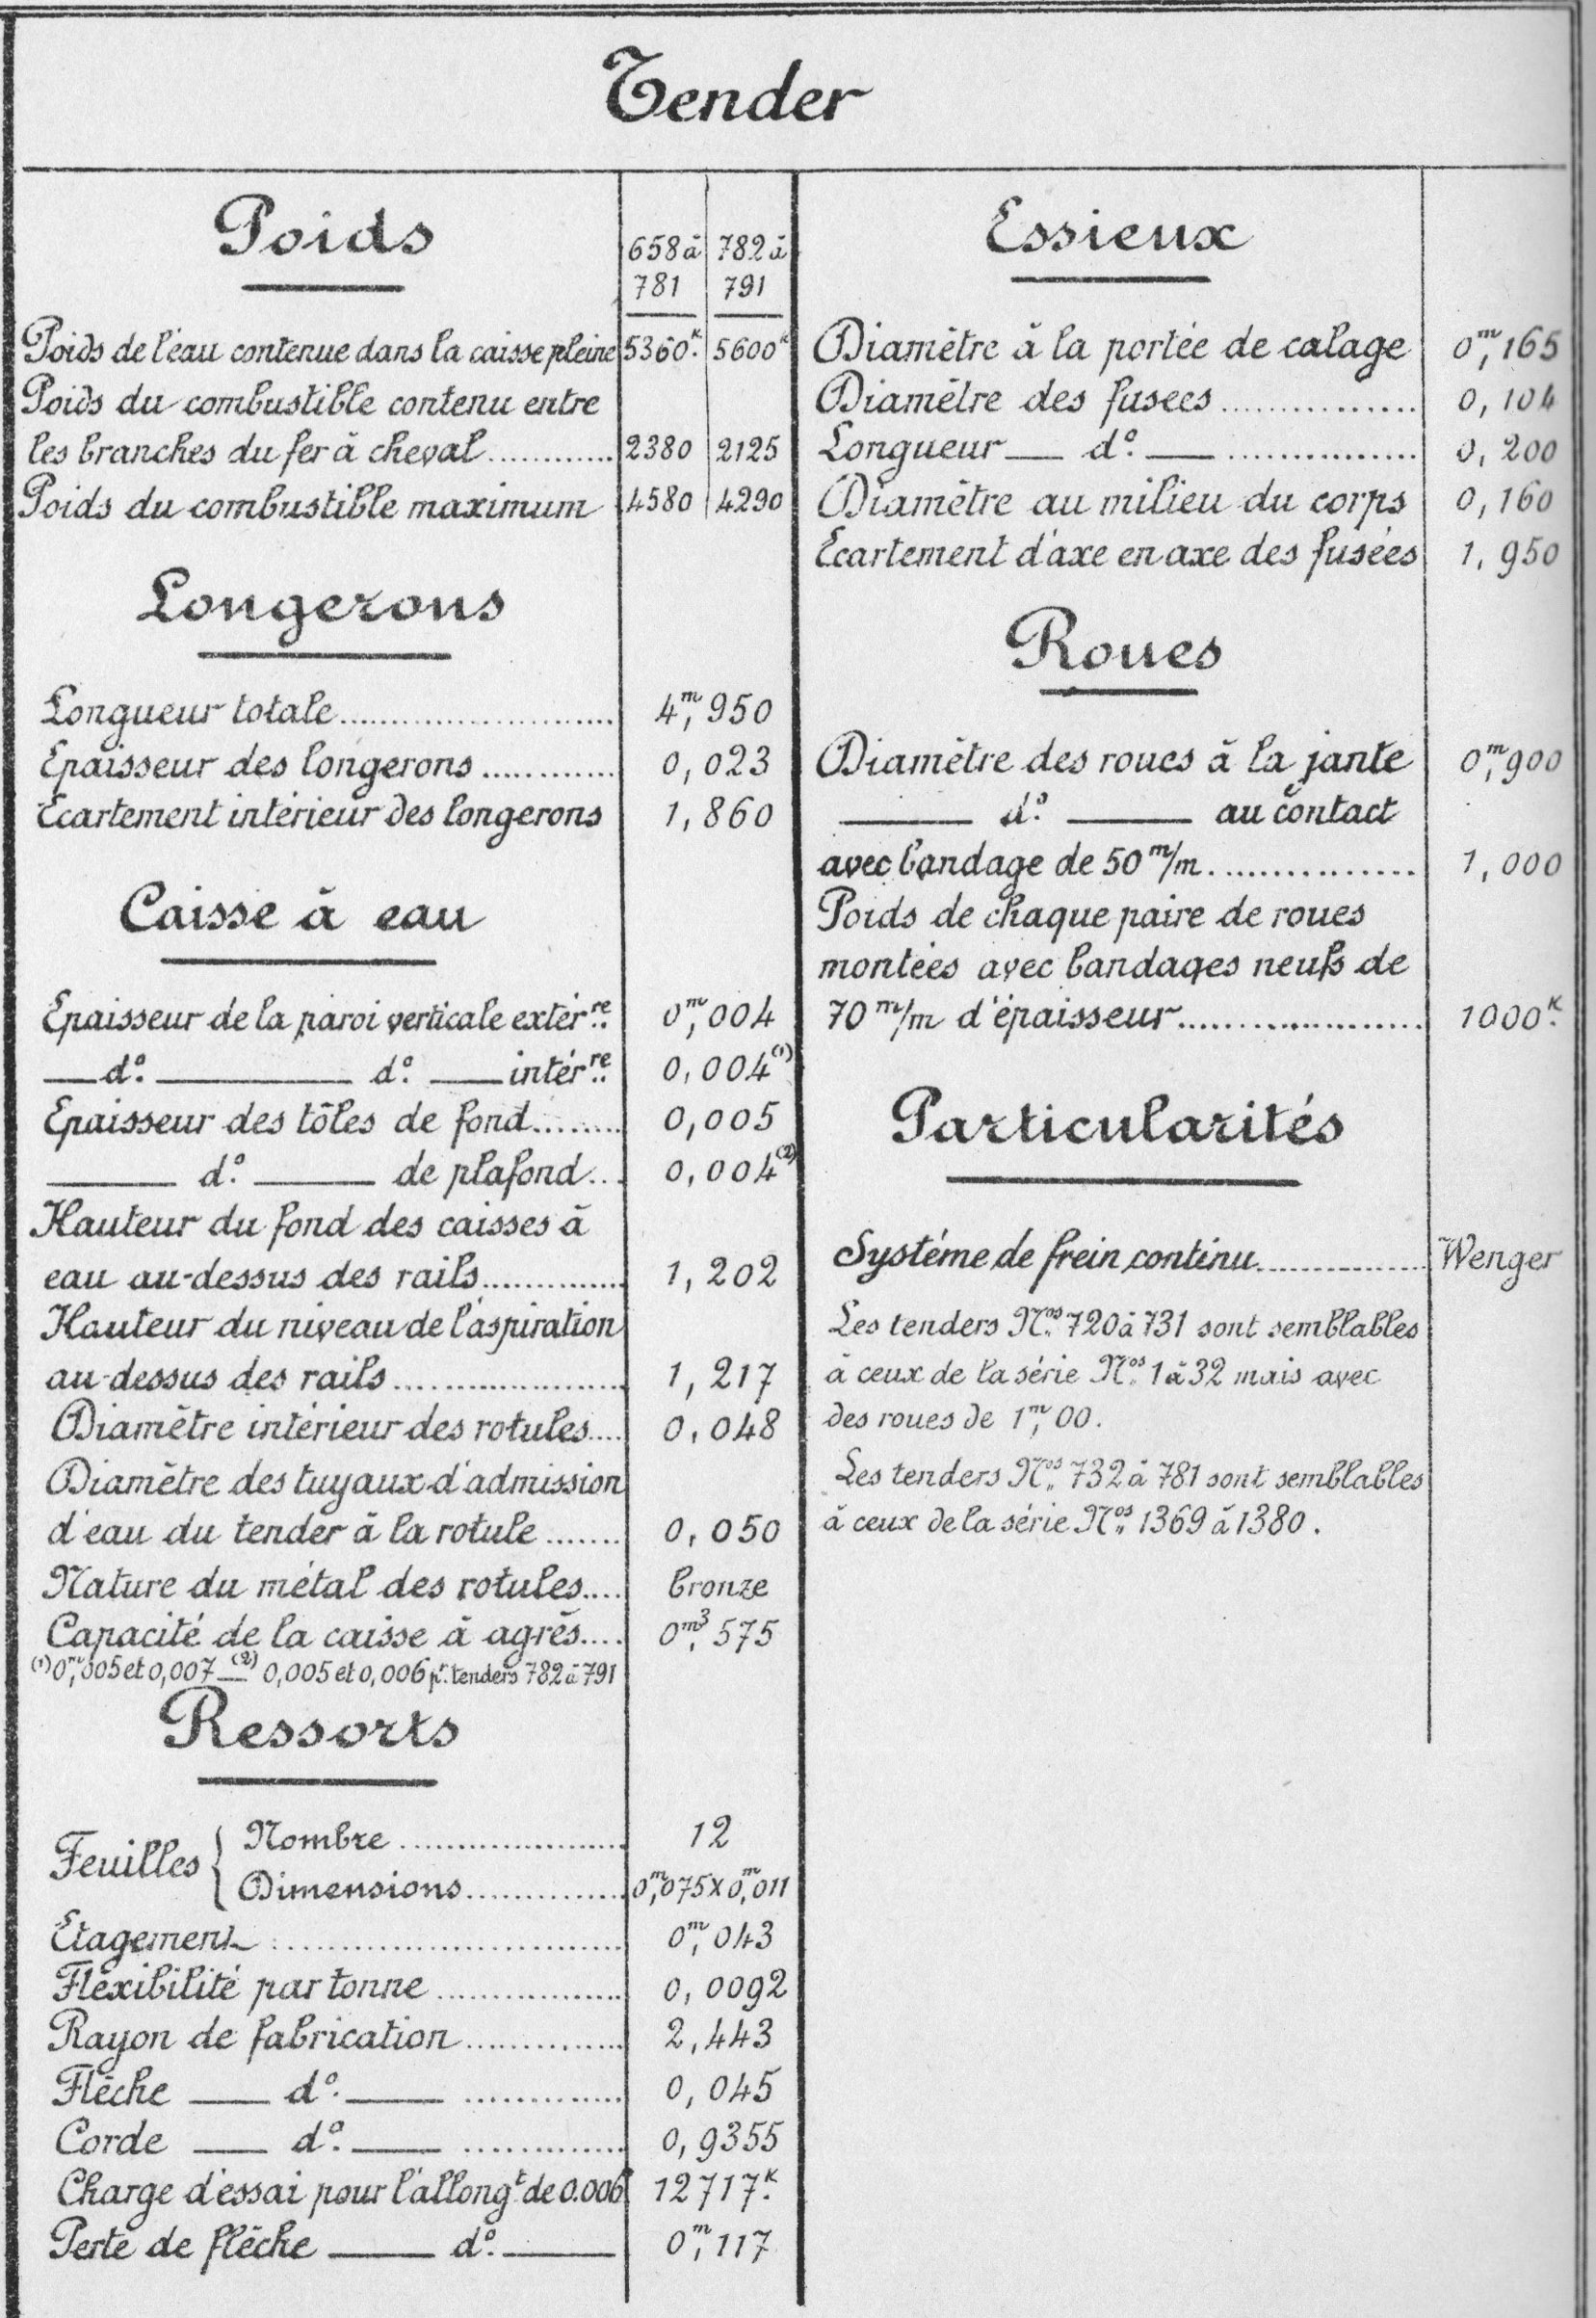 Tender
Poids
658 à 782 à
781 791
Poids de l'eau contenue dans la caisse pleine 5360k. 5600k
Poids du combustible contenu entre
les branches du fer à cheval ............ 2380 2125
Poids du combustible maximum 4580 4290
Longerons
Longueur totale .......................... 4m,950
Epaisseur des longerons ............. 0,023
Ecartement intérieur des longerons 1,860
Caisse à eau
Epaisseur de la paroi verticale extér.re 0m,004
— do. ——— do. — intér.re 0,004(1)
Epaisseur des tôles de fond ........ 0,005
——— do. ——— de plafond ... 0,004(2)
Hauteur du fond des caisses à
eau au-dessus des rails .............. 1,202
Hauteur du niveau de l'aspiration
au-dessus des rails ...................... 1,217
Diamètre intérieur des rotules .... 0,048
Diamètre des tuyaux d'admission
d'eau du tender à la rotule ....... 0,050
Nature du métal des rotules .... bronze
Capacité de la caisse à agrès .... 0m3,575
(1) 0m,005 et 0,007 — (2) 0,005 et 0,006 pr. tenders 782 à 791
Ressorts
Feuilles { Nombre ...................... 12
Dimensions ............... 0m,075 x 0m,011
Etagement .................................. 0m,043
Fléxibilité par tonne .................. 0,0092
Rayon de fabrication ............... 2,443
Flèche —— do. —— ............... 0,045
Corde —— do. —— ............... 0,9355
Charge d'essai pour l'allongt de 0.006 12717k.
Perte de flèche ——— do. ——— 0m,117
Essieux
Diamètre à la portée de calage 0m,165
Diamètre des fusées ................ 0,104
Longueur — do. — ................ 0,200
Diamètre au milieu du corps 0,160
Ecartement d'axe en axe des fusées 1,950
Roues
Diamètre des roues à la jante 0m,900
——— do. ——— au contact
avec bandage de 50 m/m ................ 1,000
Poids de chaque paire de roues
montées avec bandages neufs de
70 m/m d'épaisseur ..................... 1000k.
Particularités
Systéme de frein continu ............... Wenger
Les tenders Nos. 720 à 731 sont semblables
à ceux de la série Nos. 1 à 32 mais avec
des roues de 1m,00.
Les tenders Nos. 732 à 781 sont semblables
à ceux de la série Nos. 1369 à 1380.